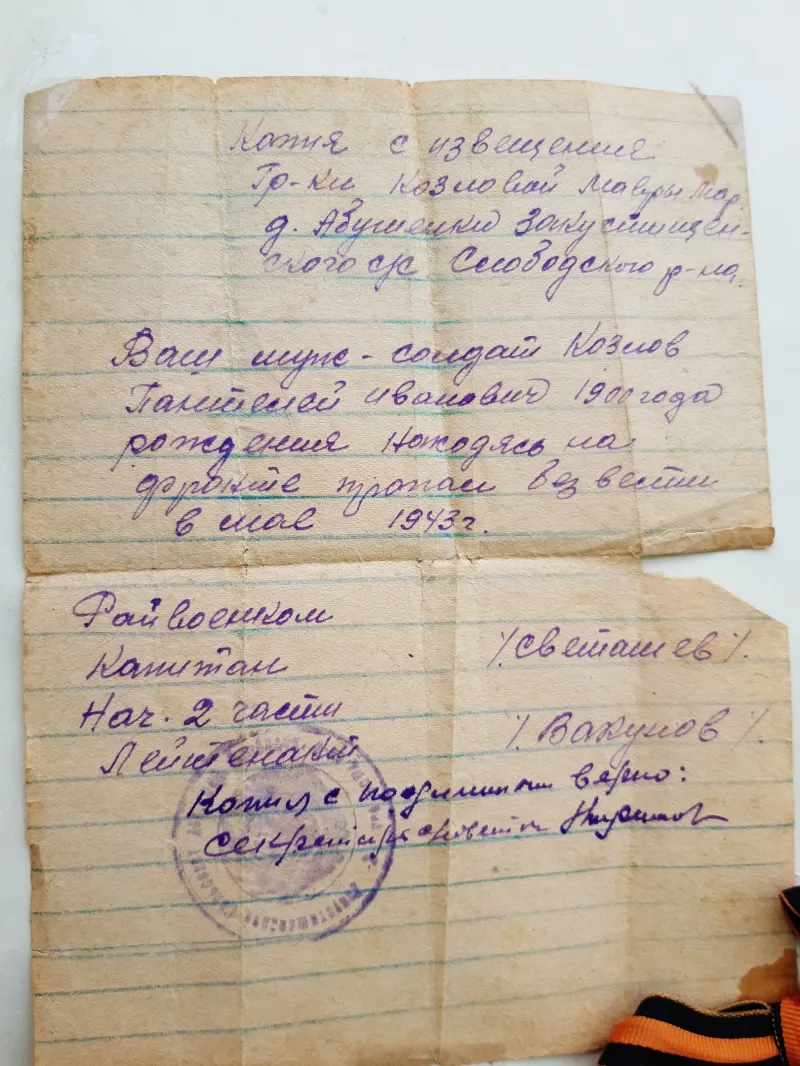 Копия с извещения
Гр-ки Козловой Мавры Мар.
д. Абушенки Закустищен-
ского с/с Слободского р-на.
Ваш муж - солдат Козлов
Пантелей Иванович 1900 года
рождения находясь на
фронте пропал без вести
в мае 1943 г.
Райвоенком
Капитан /Светашев/.
Нач. 2 части
Лейтенант /Вакунов/.
Копия с подлинным верно:
Секретарь с/совета